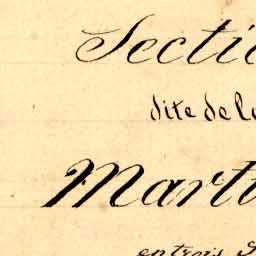 Secti
dite de l
Mart
en trois S